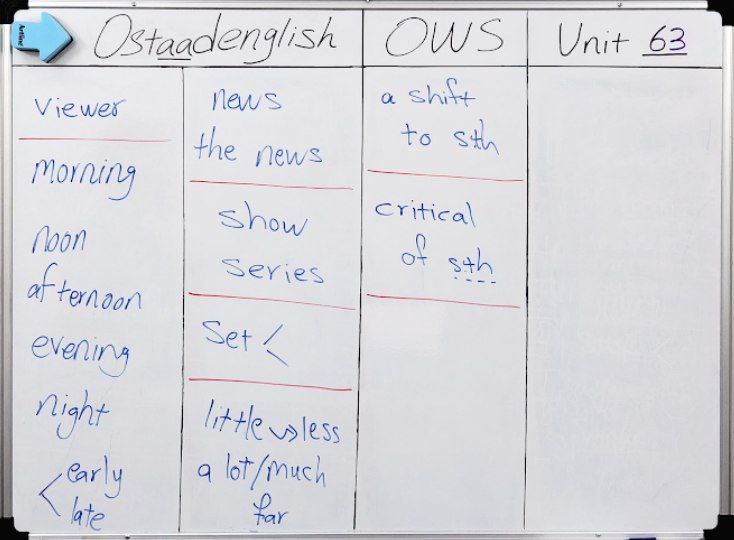 Ostaadenglish OWS Unit 63
Viewer
morning
noon
afternoon
evening
night
early
late
news
the news
show
series
Set <
little → less
a lot/much
far
a shift
to sth
critical
of sth